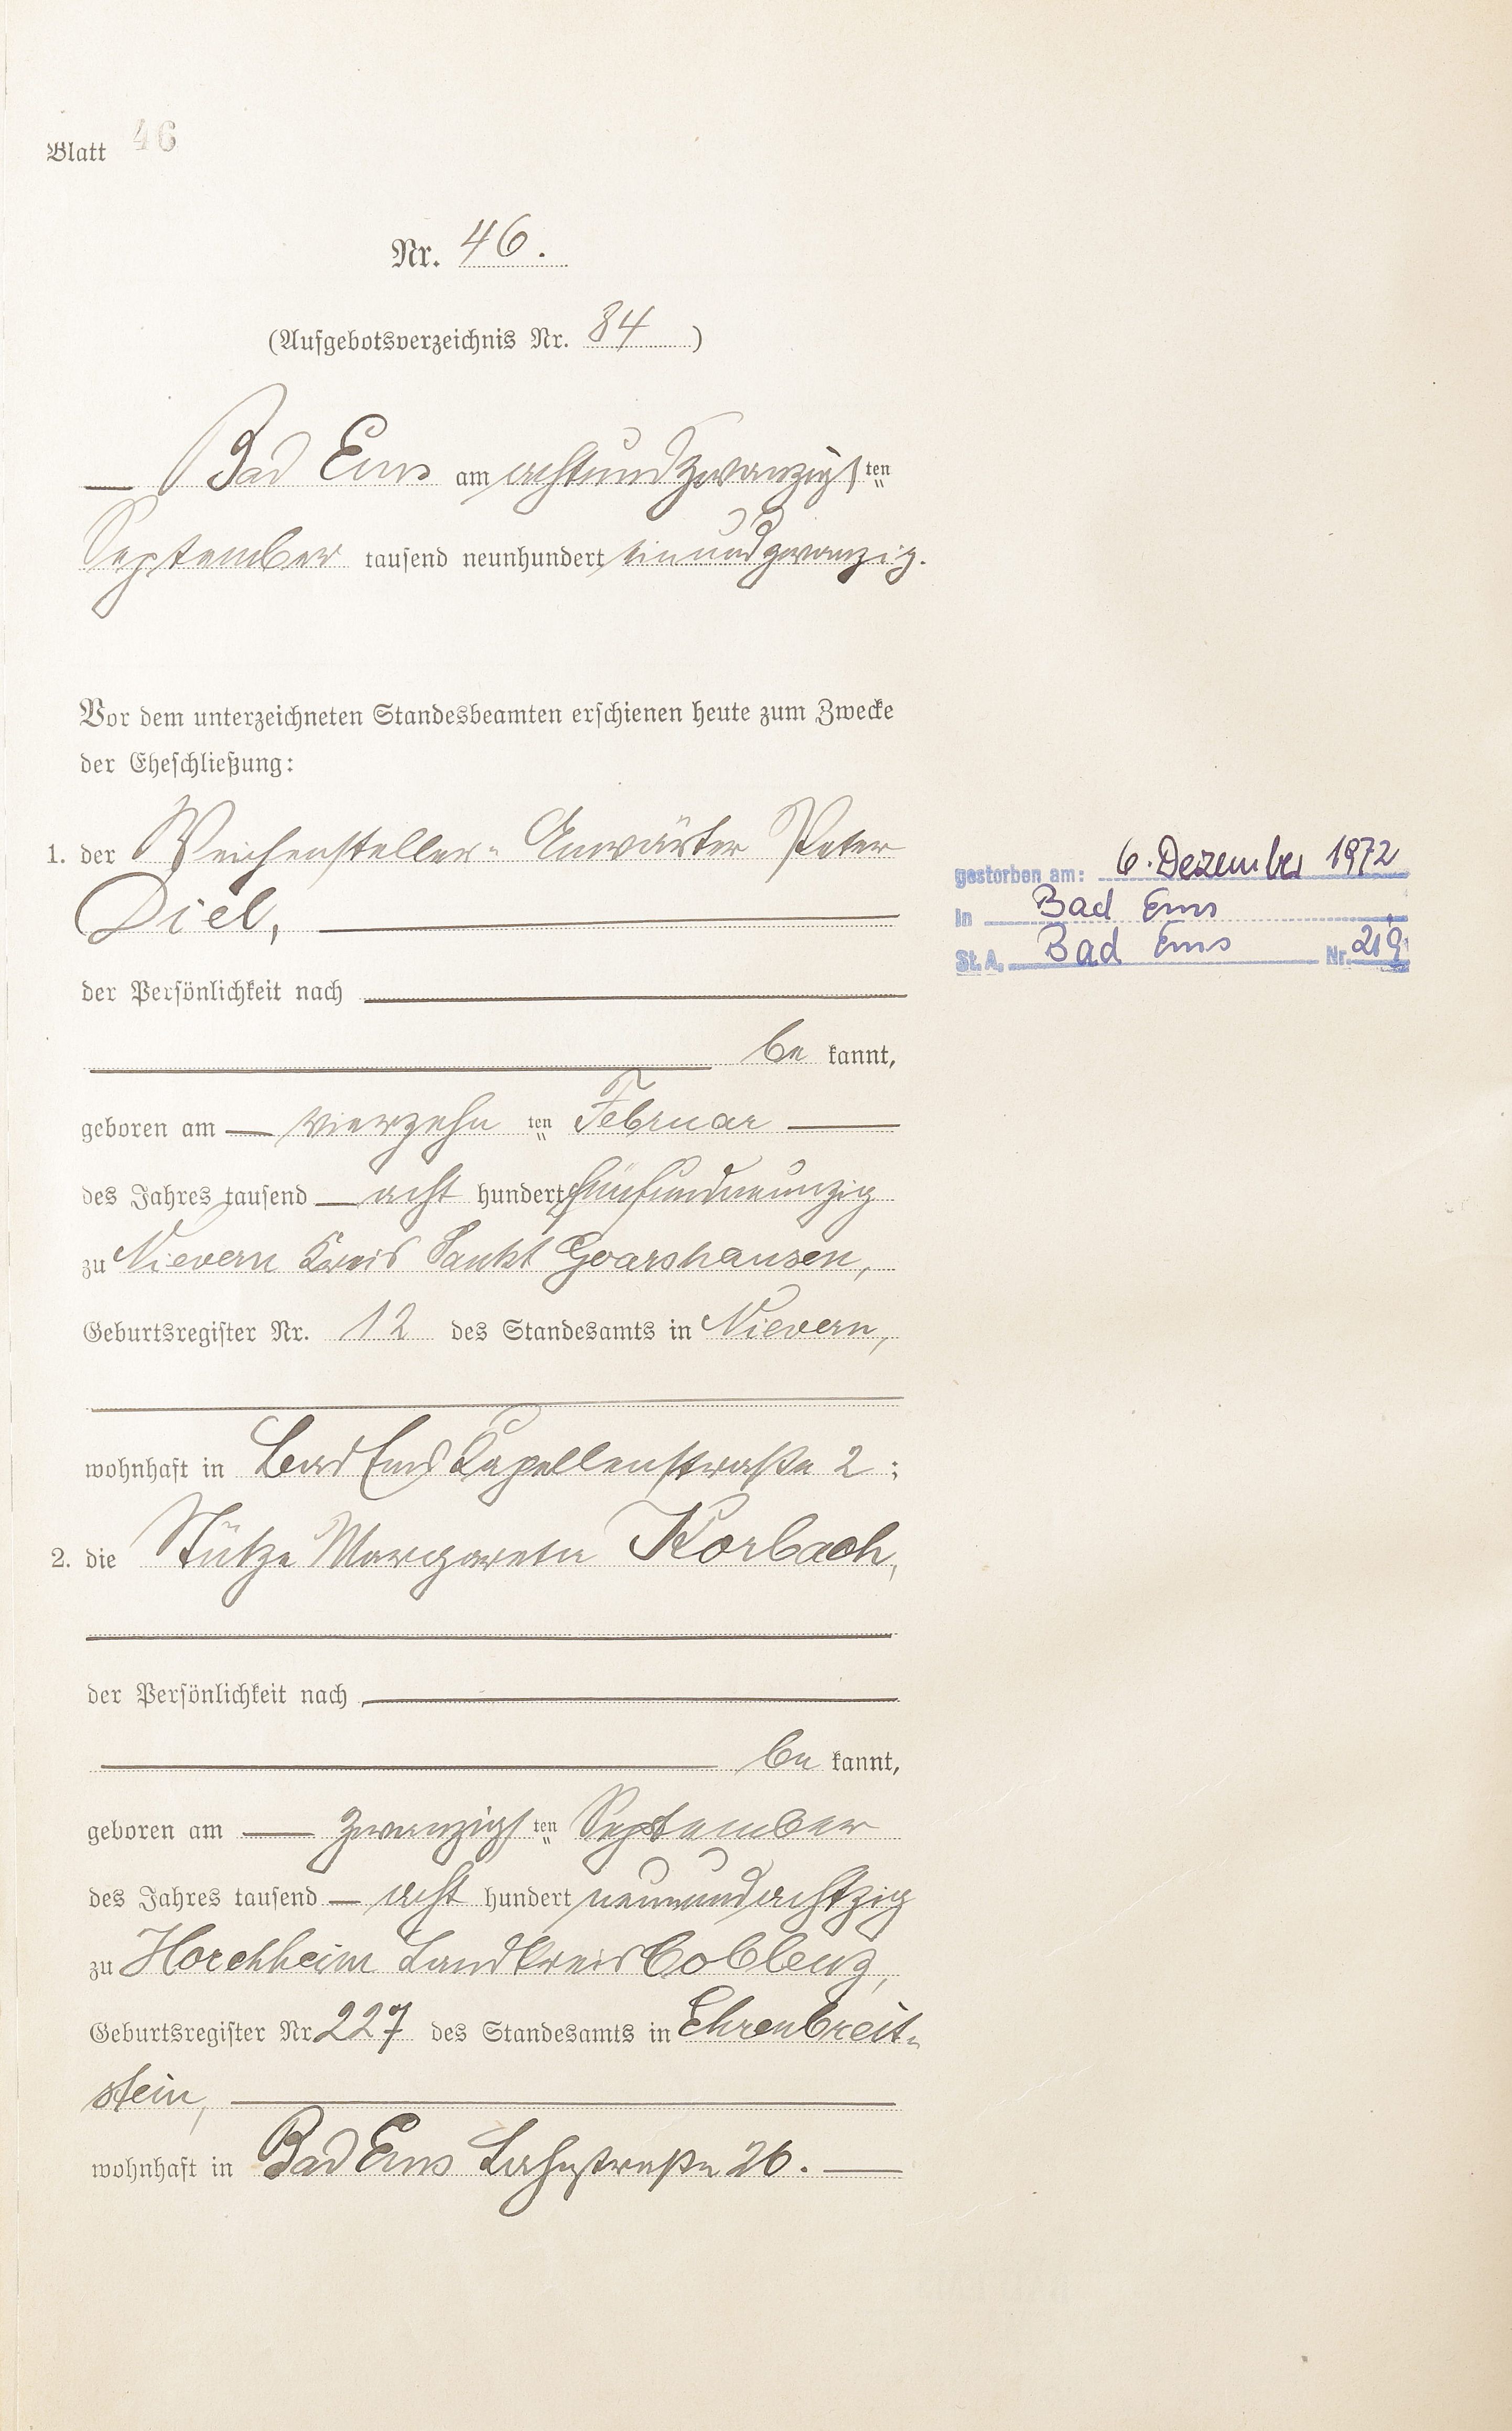 Blatt 46
Nr. 46.
(Aufgebotsverzeichnis Nr. 84)
Bad Ems am achtundzwanzigsten
September tausend neunhundert einundzwanzig.
Vor dem unterzeichneten Standesbeamten erschienen heute zum Zwecke
der Eheschließung:
1. der Weichensteller-Anwärter Peter
Diel,
der Persönlichkeit nach
be kannt,
geboren am vierzehn ten Februar
des Jahres tausend acht hundert fünfundneunzig
zu Nievern Kreis Sankt Goarshausen,
Geburtsregister Nr. 12 des Standesamts in Nievern,
wohnhaft in Bad Ems Kapellenstraße 2;
2. die Stütze Margareta Korbach,
der Persönlichkeit nach
be kannt,
geboren am zwanzigsten September
des Jahres tausend acht hundert neunundachtzig
zu Horchheim Landkreis Coblenz,
Geburtsregister Nr. 227 des Standesamts in Ehrenbreit-
stein,
wohnhaft in Bad Ems Lahnstraße 26.
gestorben am: 6. Dezember 1972
in Bad Ems
St. A. Bad Ems Nr. 219